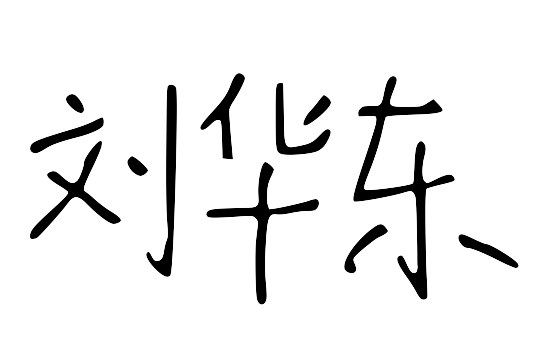 刘华东